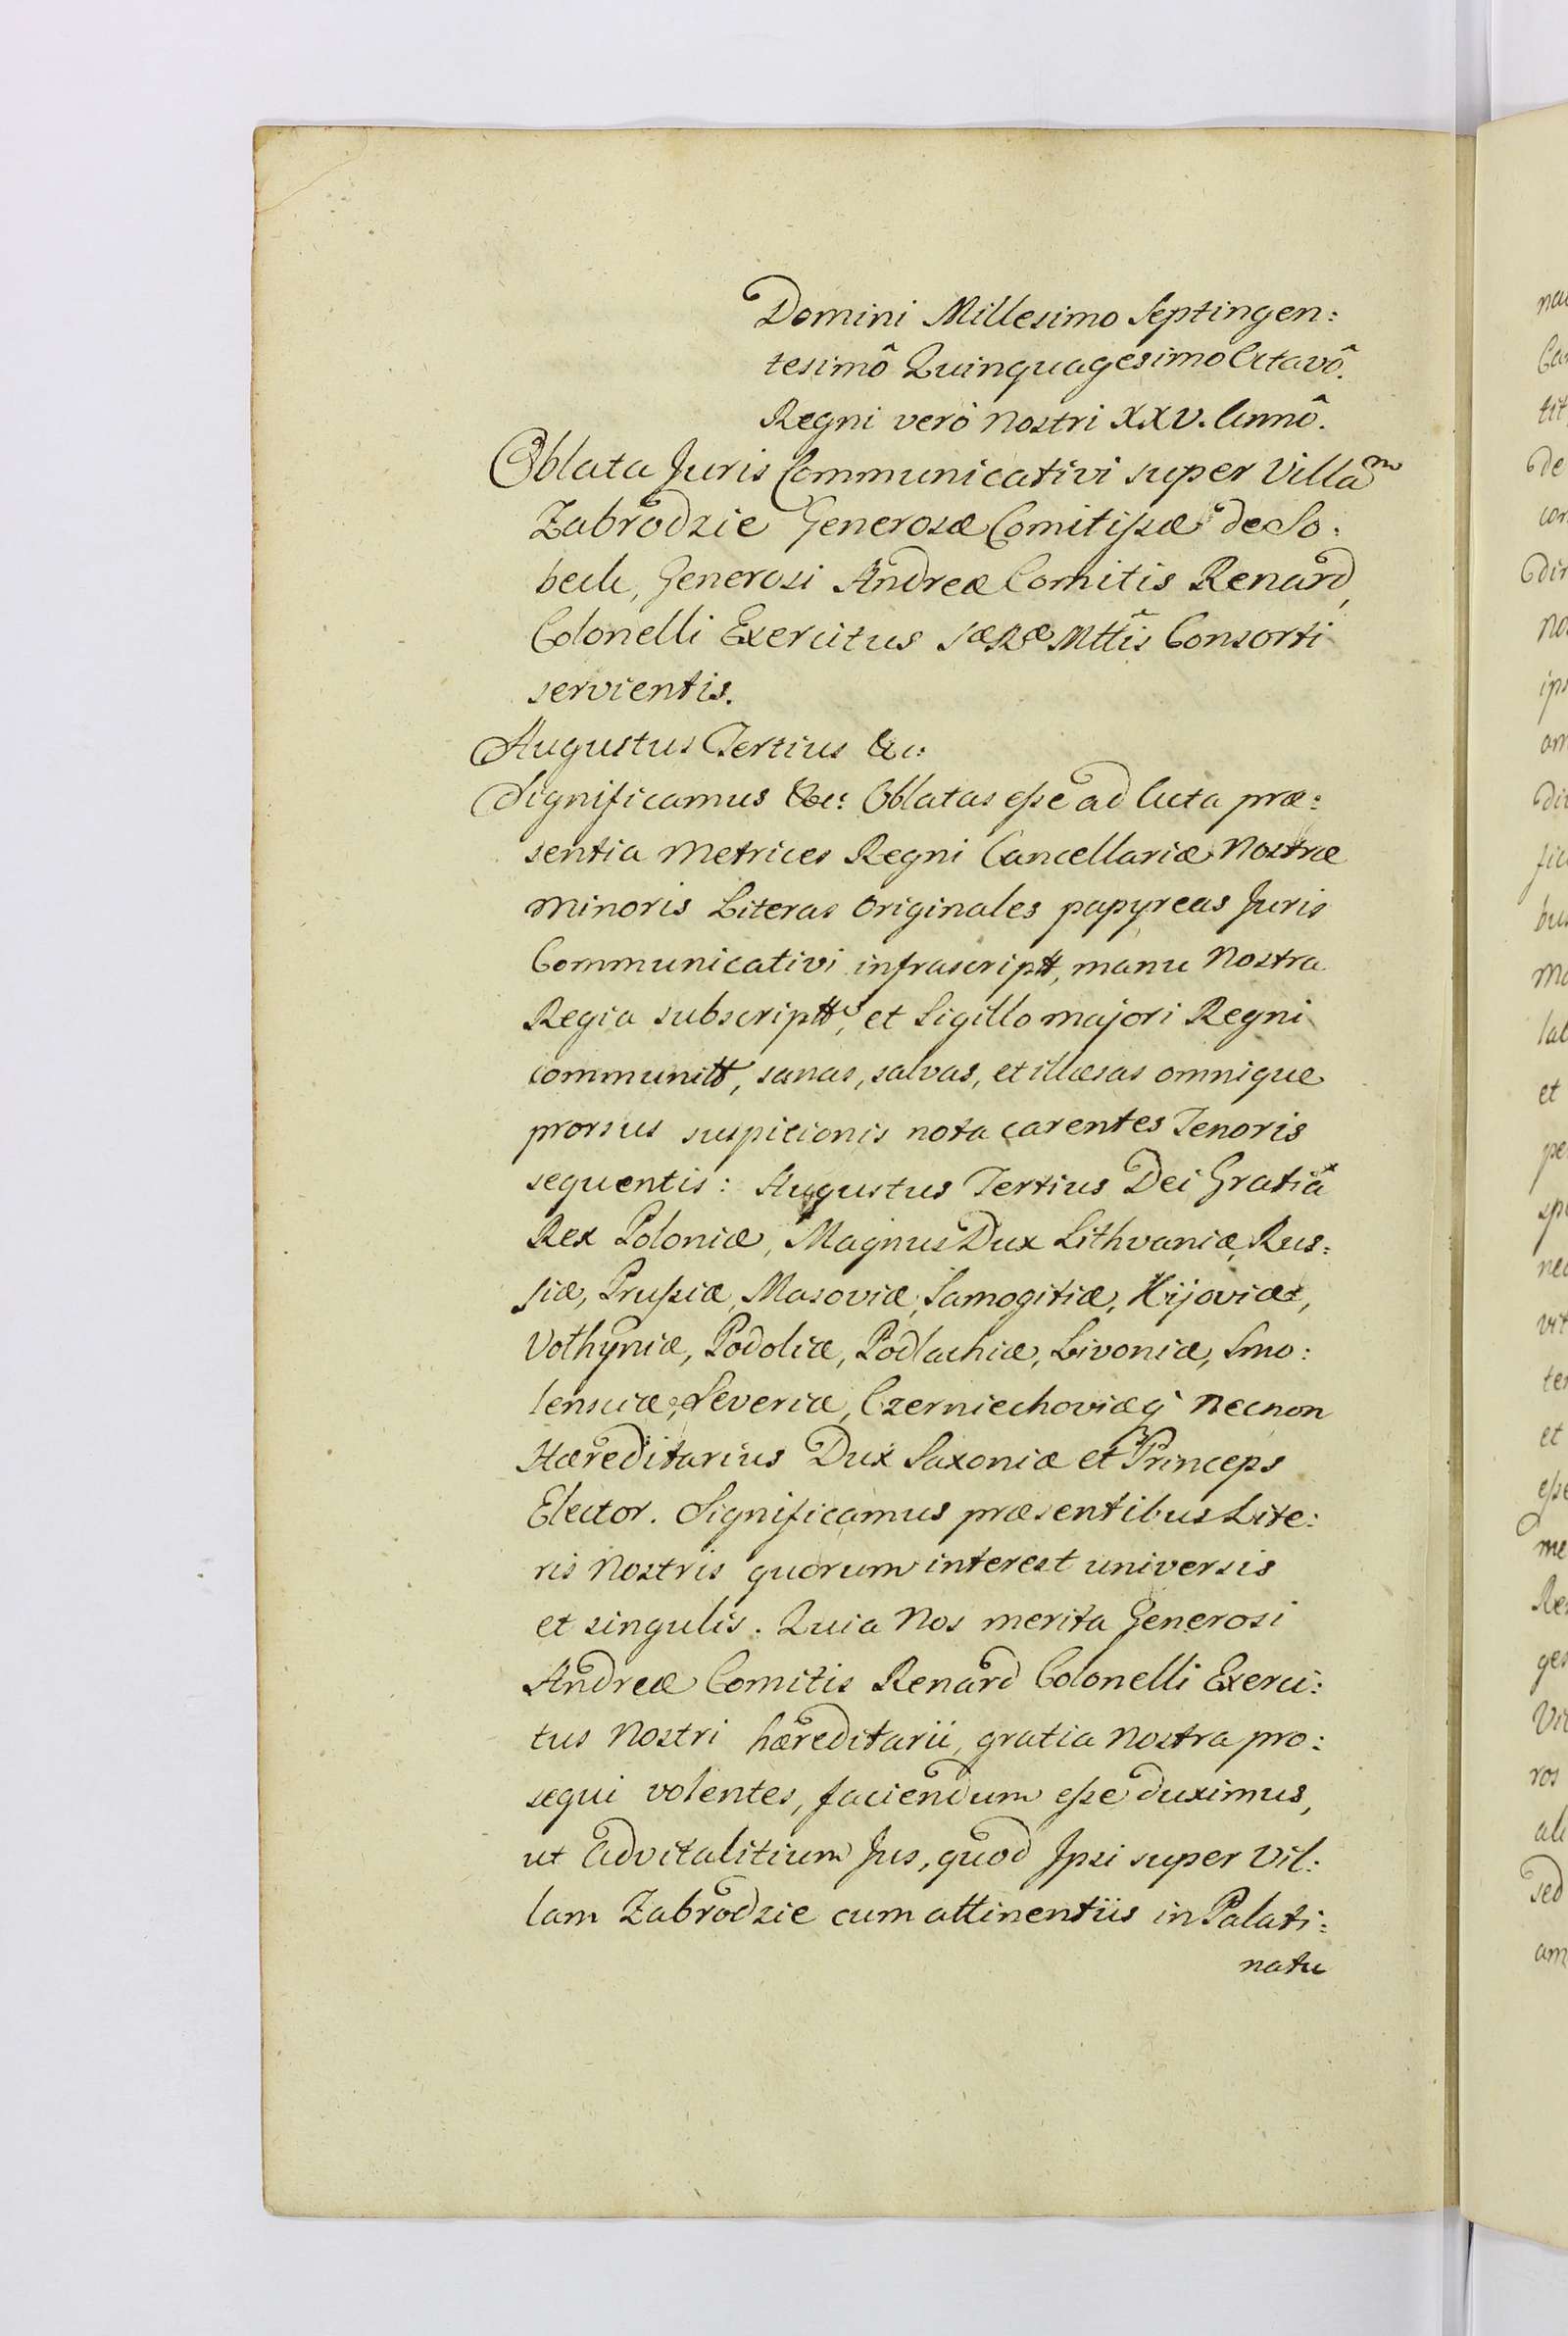 Domini Millesimo Septingen:
tesimô Quinquagesimo Octavô.
Regni verò Nostri XXV. Annô.
Oblata Juris Communicativi super Villam
Zabrodzie Generosæ Comitissæ de So:
beck, Generosi Andreæ Comitis Renard,
Colonelli Exercitus Sæ Ræ Mttis Consorti
servientis.
Augustus Tertius &c:
Significamus &c: Oblatas esse ad Acta præ:
sentia Metrices Regni Cancellariæ Nostræ
Minoris Literas Originales papyreas Juris
Communicativi infrascriptt, manu Nostra
Regia subscriptt, et Sigillo majori Regni
communitt, sanas, salvas, et illæsas omnique
prorsus suspicionis nota carentes Tenoris
sequentis: Augustus Tertius Dei Gratiâ
Rex Poloniæ, Magnus Dux Lithvaniæ, Rus:
siæ, Prussiæ, Masoviæ, Samogitiæ, Kijoviæ,
Volhyniæ, Podoliæ, Podlachiæ, Livoniæ, Smo:
lensciæ, Severiæ, Czerniechoviæq Necnon
Hæreditarius Dux Saxoniæ et Princeps
Elector. Significamus præsentibus Lite:
ris Nostris quorum interest universis
et singulis. Quia Nos merita Generosi
Andreæ Comitis Renard Colonelli Exerci:
tus Nostri hæreditarii, gratia Nostra pro:
sequi volentes, faciendum esse duximus,
ut Advitalitium Jus, quod Ipsi super Vil:
lam Zabrodzie cum attinentiis in Palati:
natu